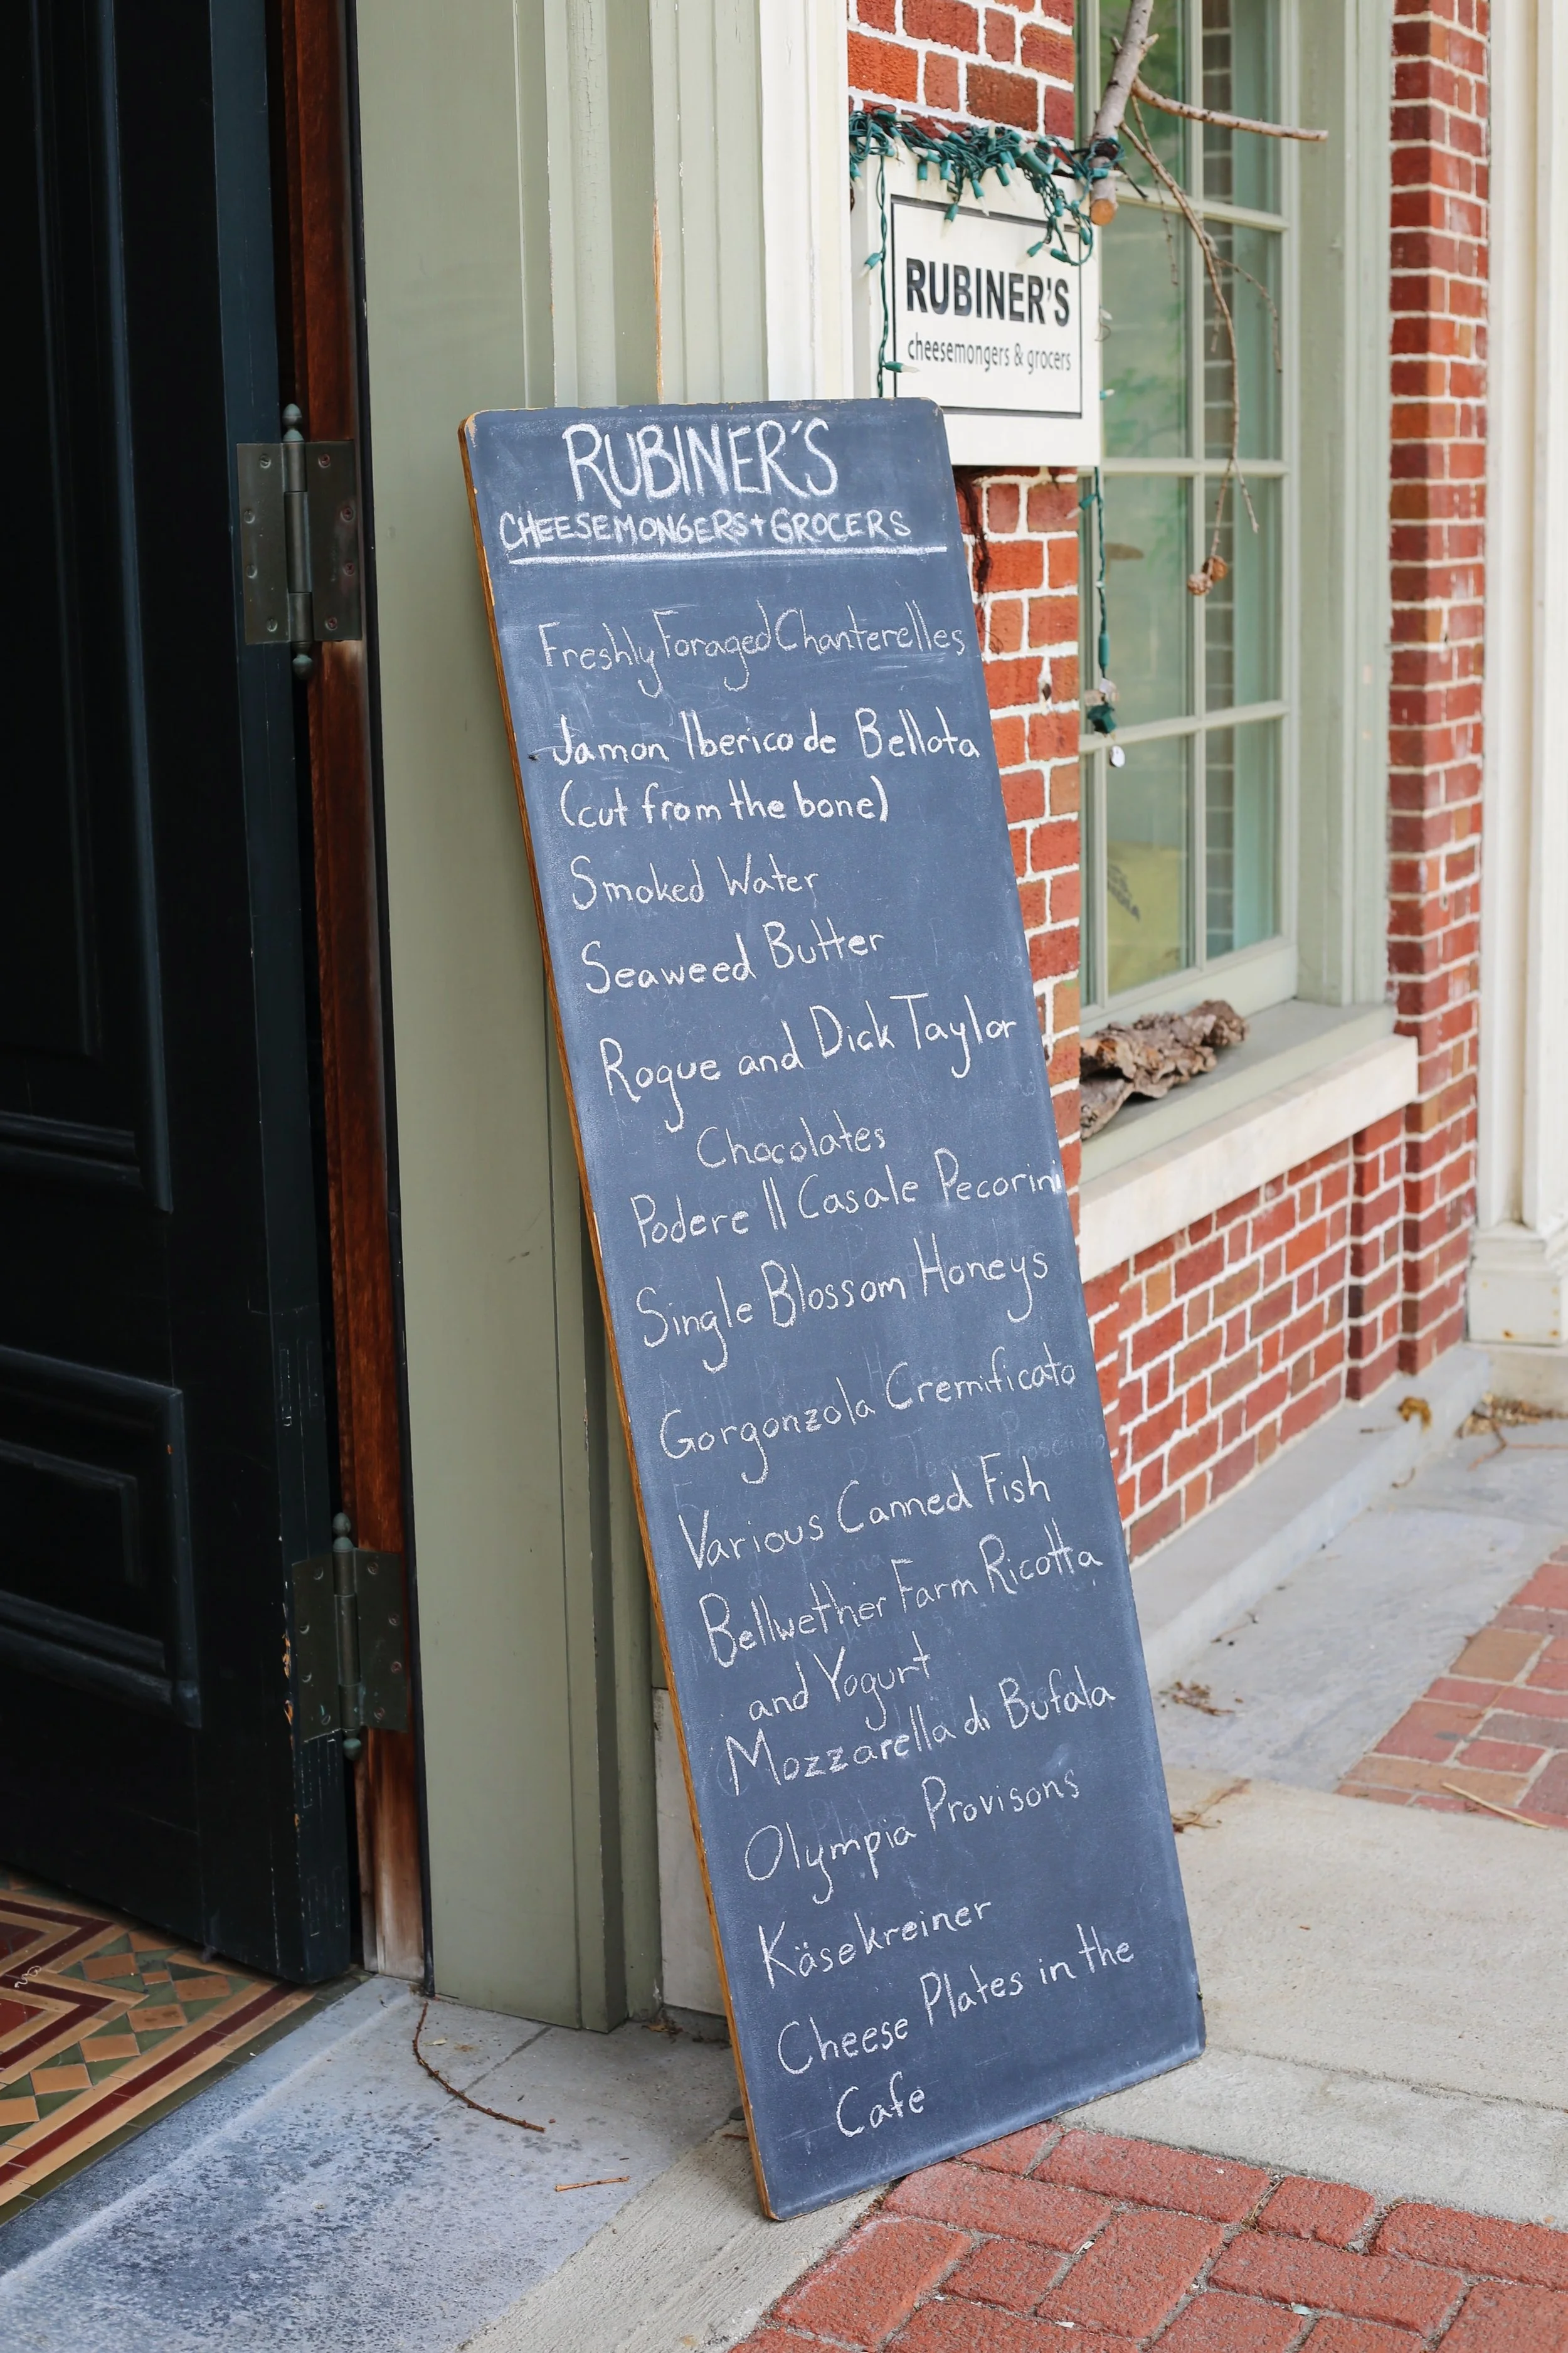 RUBINER'S
cheesemongers & grocers
RUBINER'S
CHEESEMONGERS + GROCERS
Freshly Foraged Chanterelles
Jamon Iberico de Bellota
(cut from the bone)
Smoked Water
Seaweed Butter
Rogue and Dick Taylor
Chocolates
Podere Il Casale Pecorini
Single Blossom Honeys
Gorgonzola Cremificato
Various Canned Fish
Bellwether Farm Ricotta
and Yogurt
Mozzarella di Bufala
Olympia Provisons
Käsekreiner
Cheese Plates in the
Cafe